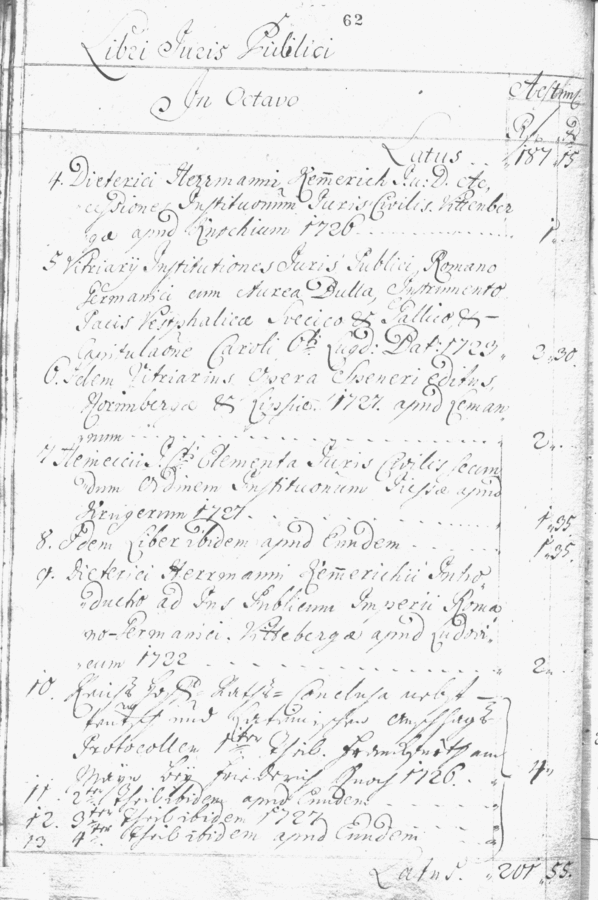 62
Libri Juris Publici
In Octavo
Aestim
Rf. d
Latus . . 187 15
4. Dieterici Herrmanni Kem̄erich Ju: D. etc,
Institutionum Juris Civilis. Vittenber
gæ apud Knochium 1726 1.
5 Vitriarij Institutiones Juris Publici, Romano
Germanici cum Aurea Bulla, Instrumento
Pacis Westphalicæ Svecico & Gallico, &
Capitulaōne Caroli 6ti Lugd: Bat: 1723 2. 30.
6. Idem Vitriarius, opera Speneri editus,
Norimbergæ & Lipsiæ. 1727. apud Leman
num 2.
7 Heineccii Elementa Juris Civilis secun
dum Ordinem Institutionum Giessæ apud
Krugerum 1727 1. 35
8. Idem Liber ibidem apud Eundem 1. 35.
9. Dieterici Herrmanni Kem̄erichii Intro
ductio ad Jus Publicum Imperii Roma
no-Germanici. Vittebergæ apud Ludovi
cum 1722 2.
10. Reichs Hoff Raths= Conclusa nebst
teutsch und Latinischen
Protocollen 1ter Theil. Franckfurth am
Mayn bey Friederich Knoch 1726. 4
11 2ter Theil ibidem apud Eundem
12. 3ter Theil ibidem 1727
13 4ter Theil ibidem apud Eundem
Latus. 201 55.